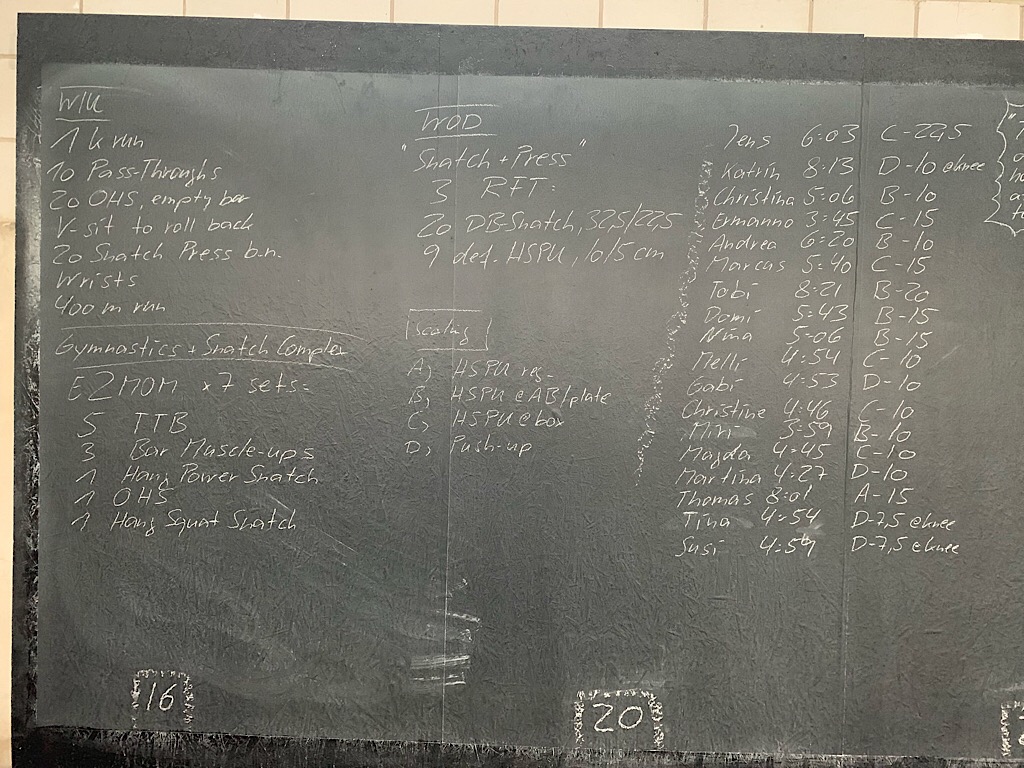 W/U
1 k run
10 Pass-Throughs
20 OHS, empty bar
V-sit to roll back
20 Snatch Press b.n.
Wrists
400 m run
Gymnastics + Snatch Complex
E2MOM x 7 sets:
5 TTB
3 Bar Muscle-ups
1 Hang Power Snatch
1 OHS
1 Hang Squat Snatch
16
WOD
"Snatch + Press"
3 RFT:
20 DB-Snatch, 32,5/22,5
9 def. HSPU, 10/5 cm
Scaling
A) HSPU reg.
B) HSPU @AB/plate
C) HSPU@box
D) Push-up
20
Jens 6:03 C-22,5
Katrin 8:13 D-10 @knee
Christina 5:06 B-10
Ermanno 3:45 C-15
Andrea 6:20 B-10
Marcus 5:40 C-15
Tobi 8:21 B-20
Domi 5:43 B-15
Nina 5:06 B-15
Melli 4:54 C-10
Gabi 4:53 D-10
Christine 4:46 C-10
Miri 3:59 B-10
Magda 4:45 C-10
Martina 4:27 D-10
Thomas 8:01 A-15
Tina 4:54 D-7,5 @knee
Susi D-7,5 @knee